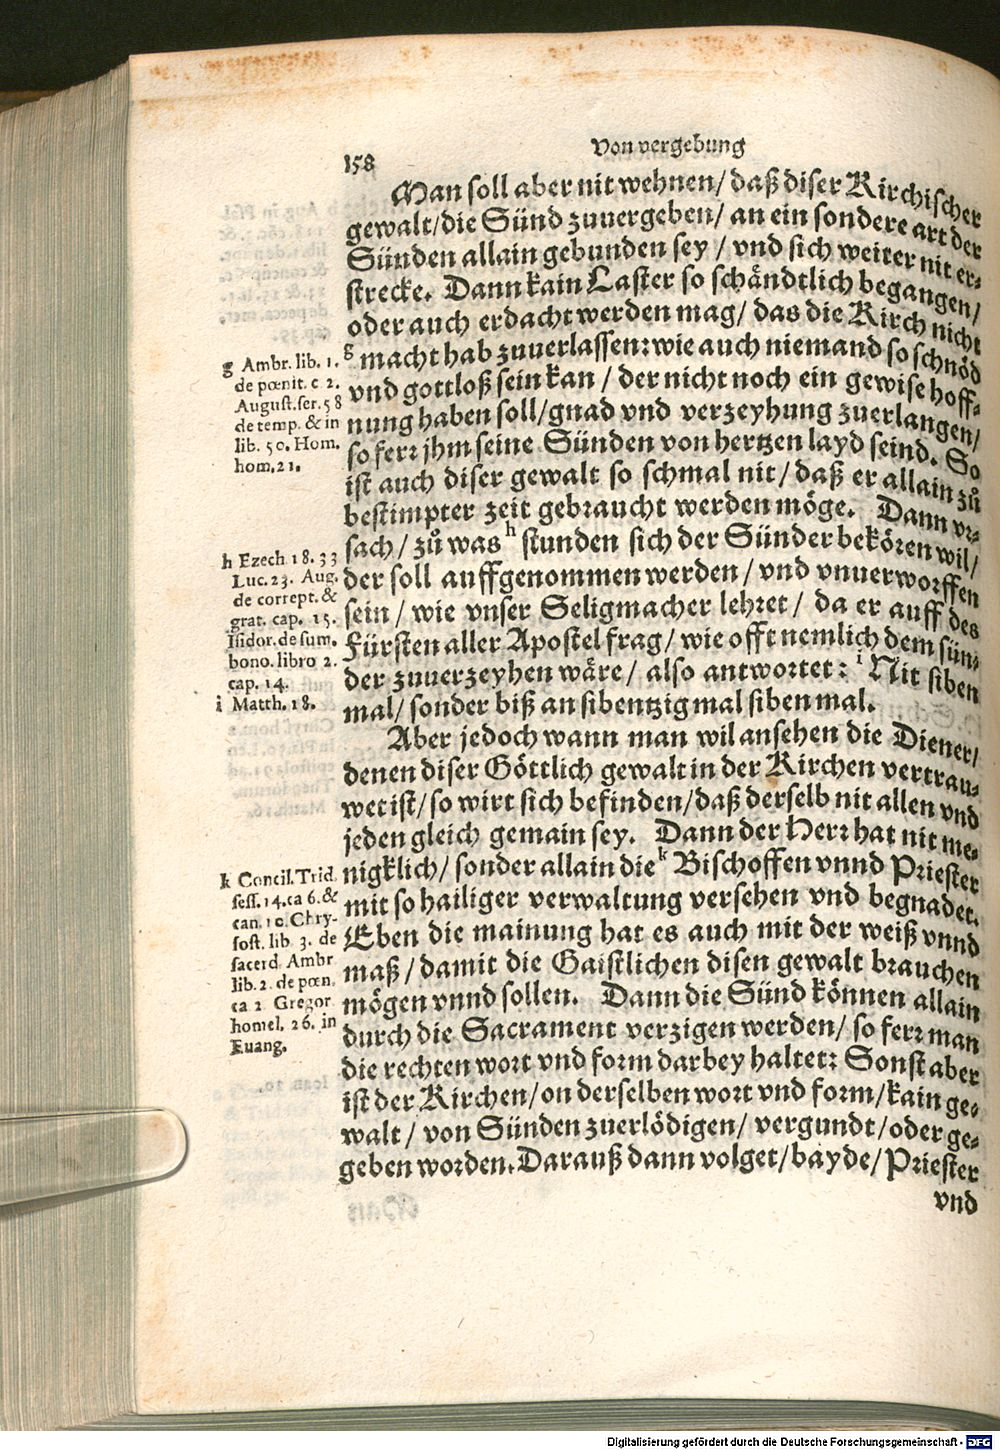 158
Von vergebung
Man soll aber nit wehnen/ daß diser Kirchischer
gewalt/die Sünd zuuergeben/ an ein sondere art der
Sünden allain gebunden sey / vnd sich weiter nit er-
strecke. Dann kain Laster so schändtlich begangen/
oder auch erdacht werden mag/ das die Kirch nicht
g macht hab zuuerlassen: wie auch niemand so schnöd
vnd gottloß sein kan / der nicht noch ein gewise hoff-
nung haben soll/gnad vnd verzeyhung zuerlangen/
so ferr jhm seine Sünden von hertzen layd seind. So
ist auch diser gewalt so schmal nit/ daß er allain zů
bestimpter zeit gebraucht werden möge. Dann vr-
sach/ zů was h stunden sich der Sünder bekören wil/
der soll auffgenommen werden/ vnd vnuerworffen
sein/ wie vnser Seligmacher lehret/ da er auff des
Fürsten aller Apostel frag/ wie offt nemlich dem sün-
der zuuerzeyhen wäre/ also antwortet: i Nit siben
mal/ sonder biß an sibentzig mal siben mal.
Aber jedoch wann man wil ansehen die Diener/
denen diser Göttlich gewalt in der Kirchen vertrau-
wet ist/ so wirt sich befinden/daß derselb nit allen vnd
jeden gleich gemain sey. Dann der Herr hat nit me-
nigklich/ sonder allain die k Bischoffen vnnd Priester
mit so hailiger verwaltung versehen vnd begnadet.
Eben die mainung hat es auch mit der weiß vnnd
maß/ damit die Gaistlichen disen gewalt brauchen
mögen vnnd sollen. Dann die Sünd können allain
durch die Sacrament verzigen werden/ so ferr man
die rechten wort vnd form darbey haltet: Sonst aber
ist der Kirchen/on derselben wort vnd form/kain ge-
walt/ von Sünden zuerlödigen/ vergundt/oder ge-
geben worden. Darauß dann volget/bayde/Priester
vnd
g Ambr. lib. 1.
de pœnit. c 2.
August. ser. 58
de temp. & in
lib. 50. Hom.
hom. 21.
h Ezech 18. 33
Luc. 23. Aug.
de corrept. &
grat. cap. 15.
Isidor. de sum.
bono. libro 2.
cap. 14.
i Matth. 18.
k Concil. Trid.
sess. 14. ca 6. &
can. 10. Chry-
sost. lib 3. de
sacerd Ambr
lib. 2. de pœn.
ca 2 Gregor
homel. 26. in
Euang.
Digitalisierung gefördert durch die Deutsche Forschungsgemeinschaft - DFG